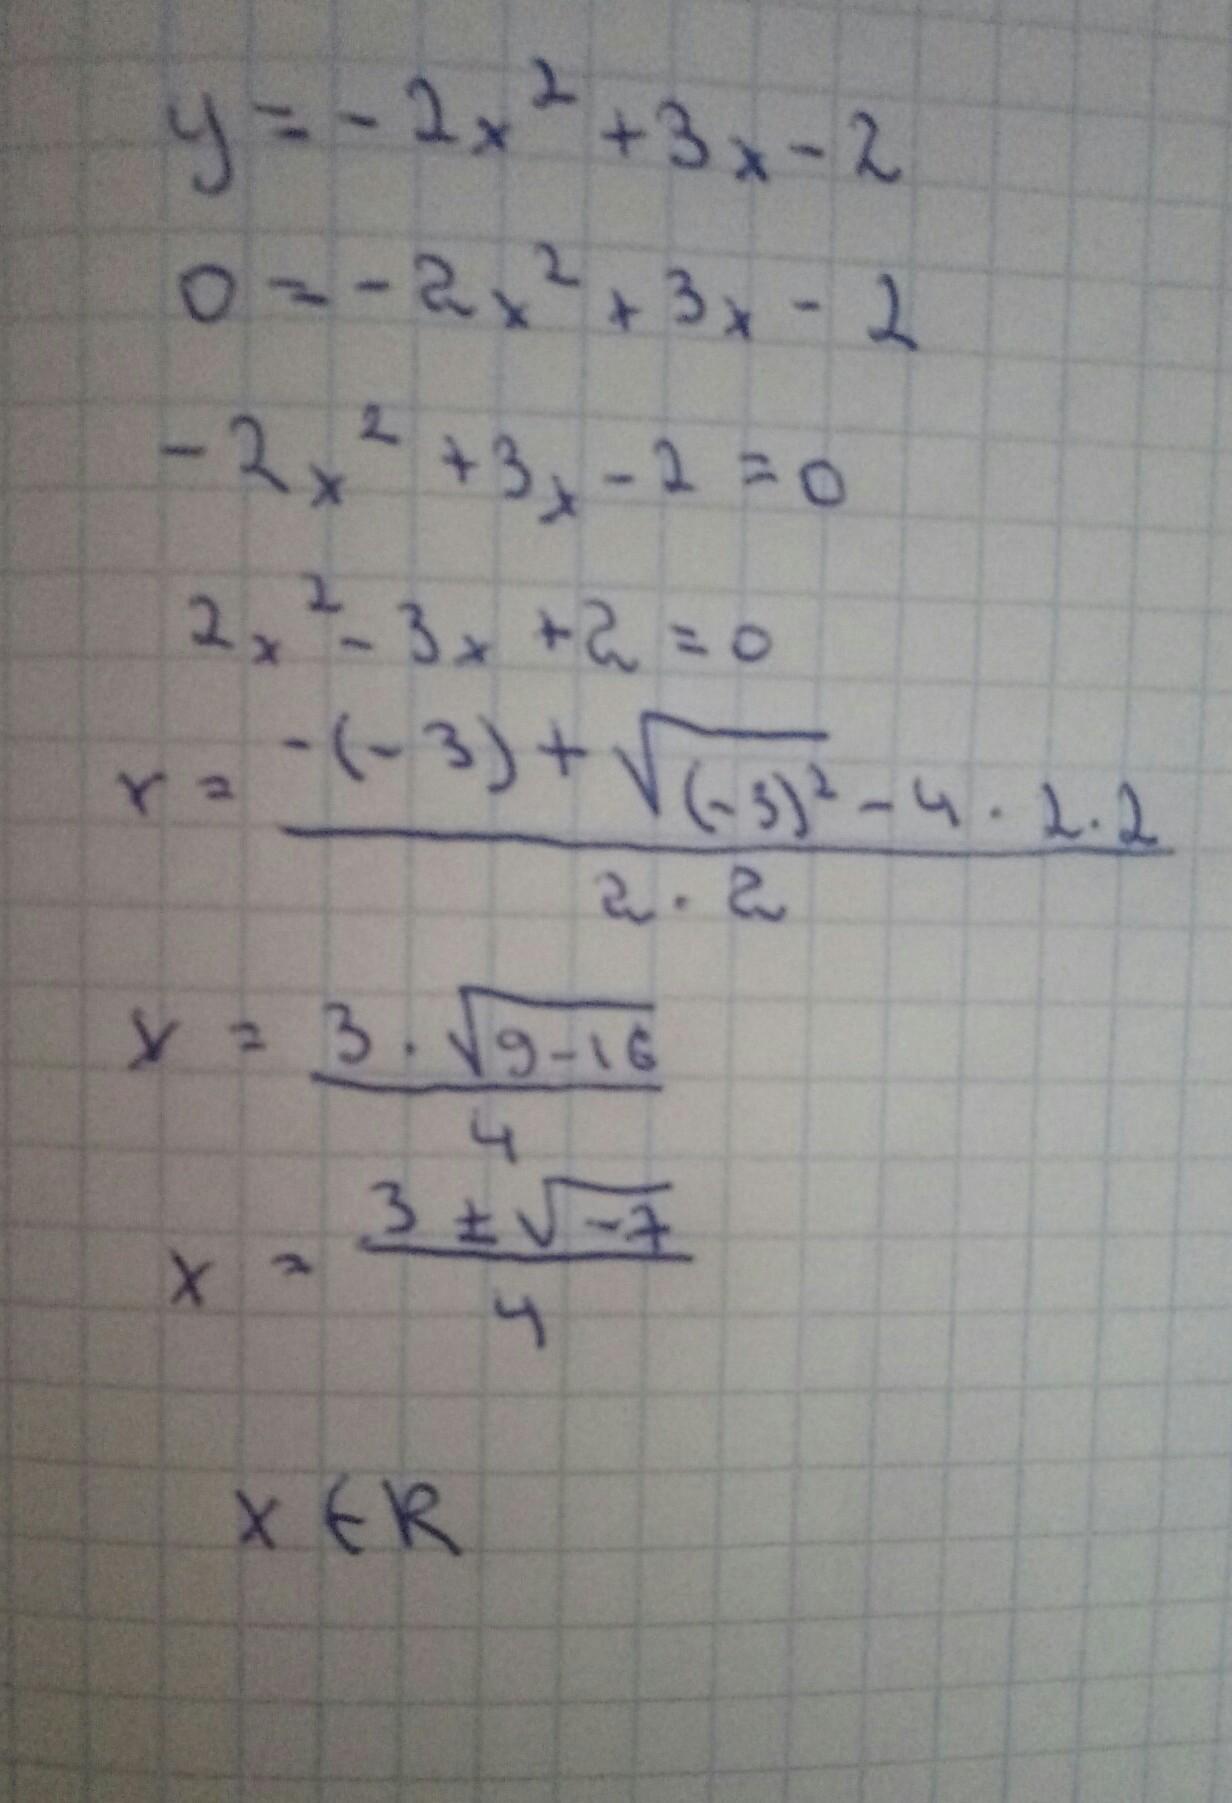 y = -2x² + 3x - 2
0 = -2x² + 3x - 2
-2x² + 3x - 2 = 0
2x² - 3x + 2 = 0
x = (-(-3) + √(-3)² - 4 · 2 · 2) / (2 · 2)
x = (3 · √(9-16)) / 4
x = (3 ± √(-7)) / 4
x ∈ R